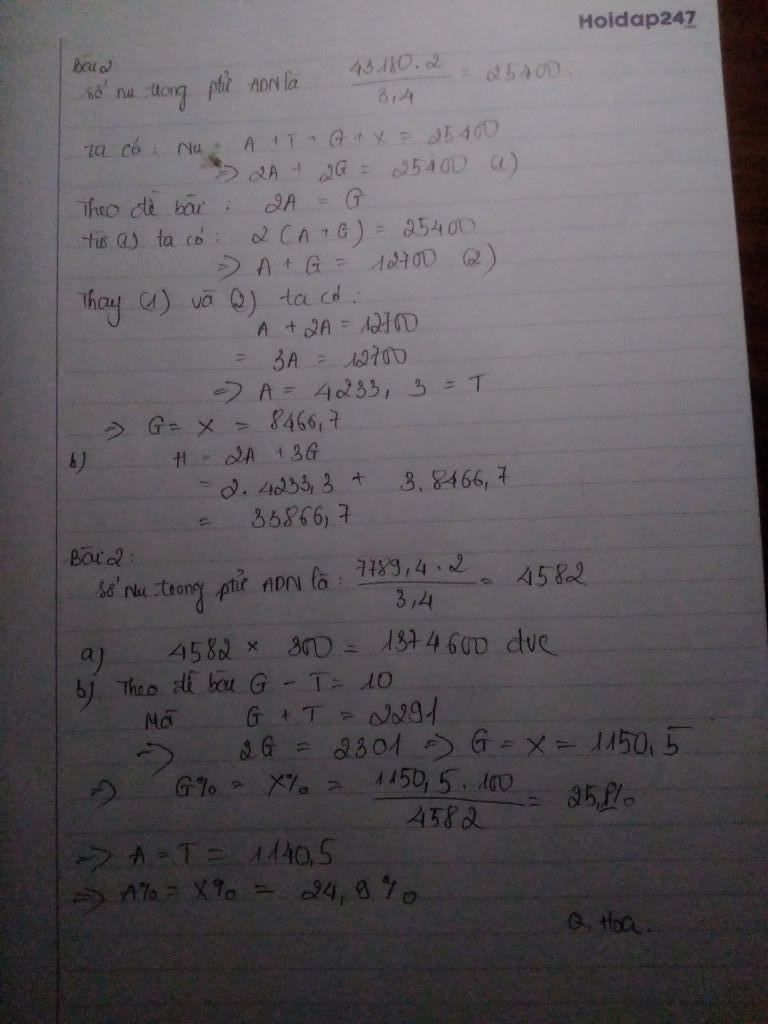 Hoidap247
Bài 2
Số nu trong phtử ADN là : 43180.2 / 3,4 = 25400.
ta có : Nu = A + T + G + X = 25400
=> 2A + 2G = 25400 (1)
Theo đề bài : 2A = G
từ (1) ta có : 2 (A + G) = 25400
=> A + G = 12700 (2)
Thay (1) và (2) ta có :
A + 2A = 12700
= 3A = 12700
=> A = 4233,3 = T
=> G = X = 8466,7
b) H = 2A + 3G
= 2. 4233,3 + 3. 8466,7
= 33866,7
Bài 2 :
Số Nu trong phtử ADN là : 7789,4.2 / 3,4 = 4582
a) 4582 × 300 = 1374600 đvc
b) Theo đề bài G - T = 10
Mà G + T = 2291
=> 2G = 2301 => G = X = 1150,5
=> G% = X% = 1150,5.100 / 4582 = 25,1%
=> A = T = 1140,5
=> A% = X% = 24,9%
Q. Hoa.